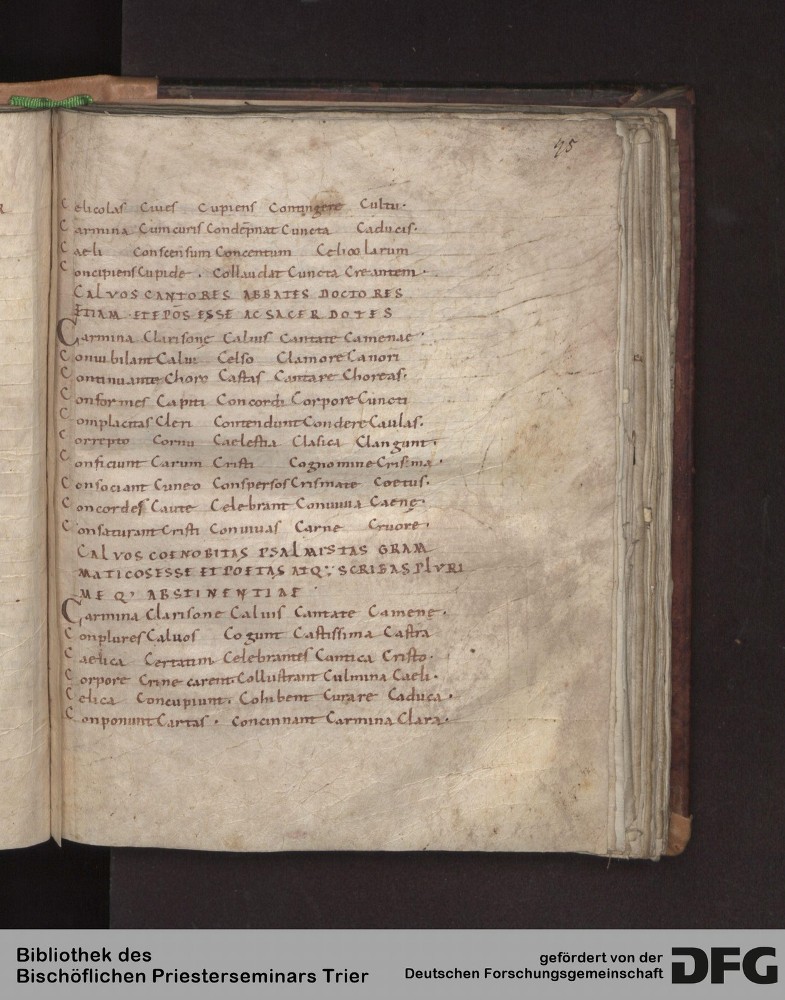 95
Celicolas Ciues Cupiens Contingere Cultu.
Carmina Cumcuris Condēpnat Cuncta Caducis.
Caeli Conscensum Concentum Celico larum
Concipiens Cupide. Collaudat Cuncta Creantem.
CALVOS CANTORES ABBATES DOCTORES
ETIAM ET EPOS ESSE AC SACERDOTES
Carmina Clarisone Calui Cantate Camenae.
Conubilant Calui Celso Clamore Canori
Continuante Choro Castas Cantare Choreas.
Conformes Capiti Concordi Corpore Cuncti
Complacitas Cleri Contendunt Condere Caulas.
Correpto Cornu Caelestia Clasica Clangunt.
Conficiunt Carum Cristi Cognomine Crisma.
Consociant Cuneo Conspersos Crismate Coetus.
Concordes Caute Celebrant Conuiuia Caene.
Consaturant Cristi Conuiuas Carne Cruore.
CALVOS COENOBITAS PSALMISTAS GRAM
MATICOS ESSE ET POETAS ATQ; SCRIBAS PLVRI
MEQ; ABSTINENTIAE
Carmina Clarisone Caluis Cantate Camene.
Conplures Caluos Cogunt Castissima Castra
Caelica Certatim Celebrantes Cantica Cristo.
Corpore Crine carent. Collustrant Culmina Caeli.
Celica Concupiunt. Cohibent Curare Caduca.
Conponunt Cartas. Concinnant Carmina Clara.
Bibliothek des
Bischöflichen Priesterseminars Trier
gefördert von der
Deutschen Forschungsgemeinschaft
DFG